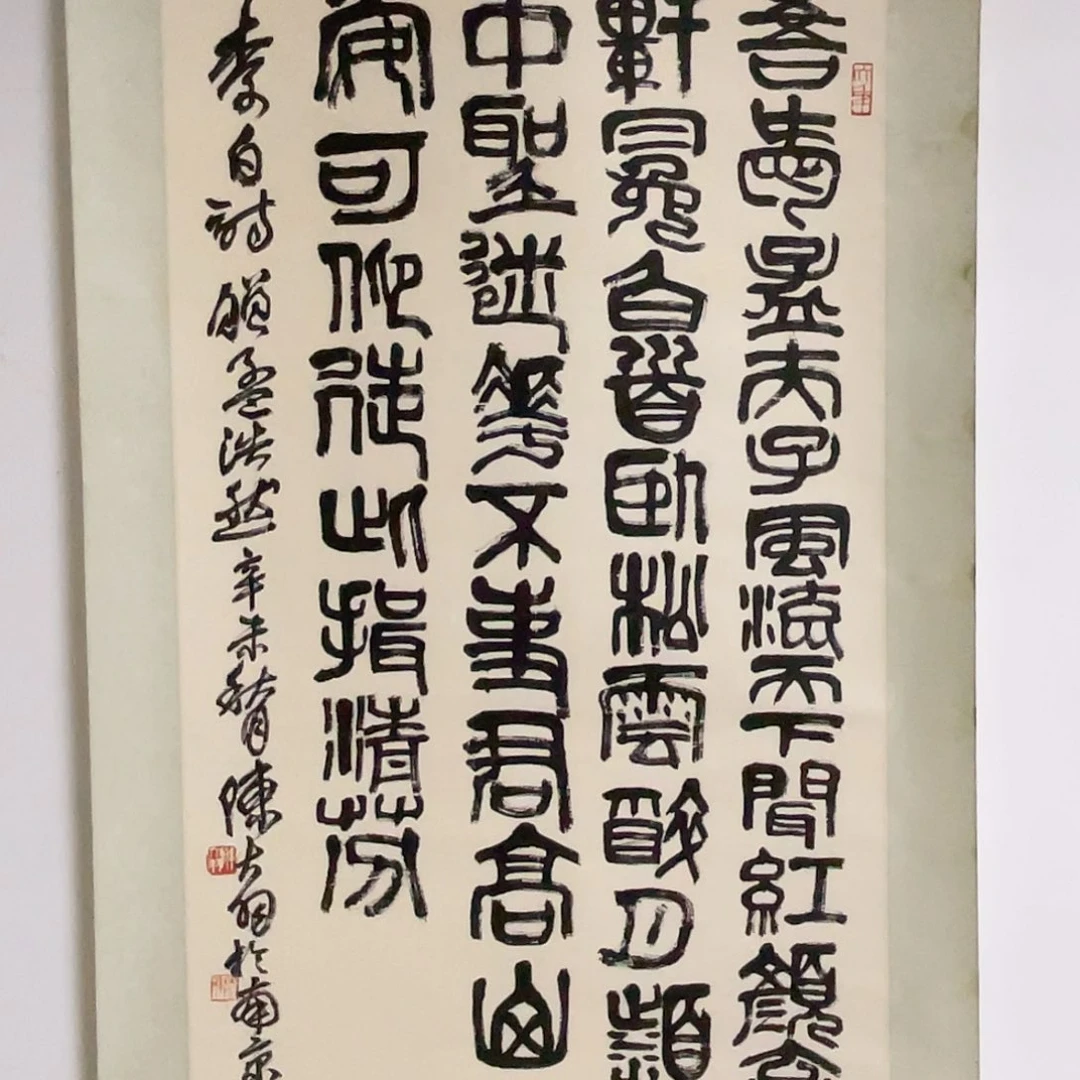 吾愛孟夫子風流天下聞紅顏
軒冕白首臥松雲醉月頻
中聖迷花不事君高山
安可仰徒此揖清芬
李白詩贈孟浩然辛未秋月陳大羽於南京